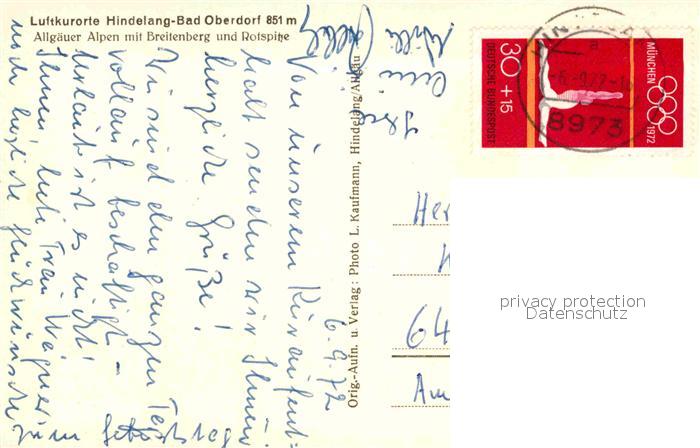 Luftkurorte Hindelang-Bad Oberdorf 851 m
Allgäuer Alpen mit Breitenberg und Rotspitze
6.9.72
Von unserem Kuraufent-
halt senden wir Ihnen
herzliche Grüße!
Wir sind den ganzen Tag
vollauf beschäftigt -
Urlaub ist es nicht!
Ihnen, liebe Frau Wagner
noch herzliche Glückwünsche
zum Geburtstag
Orig.-Aufn. u. Verlag: Photo L. Kaufmann, Hindelang/Allgäu
30+15
DEUTSCHE BUNDESPOST
MÜNCHEN
1972
a
-6.-9.72-
8973
Her
64
Am
privacy protection
Datenschutz